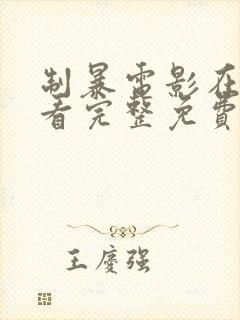 制暴雷影在
看完整免費
王慶强